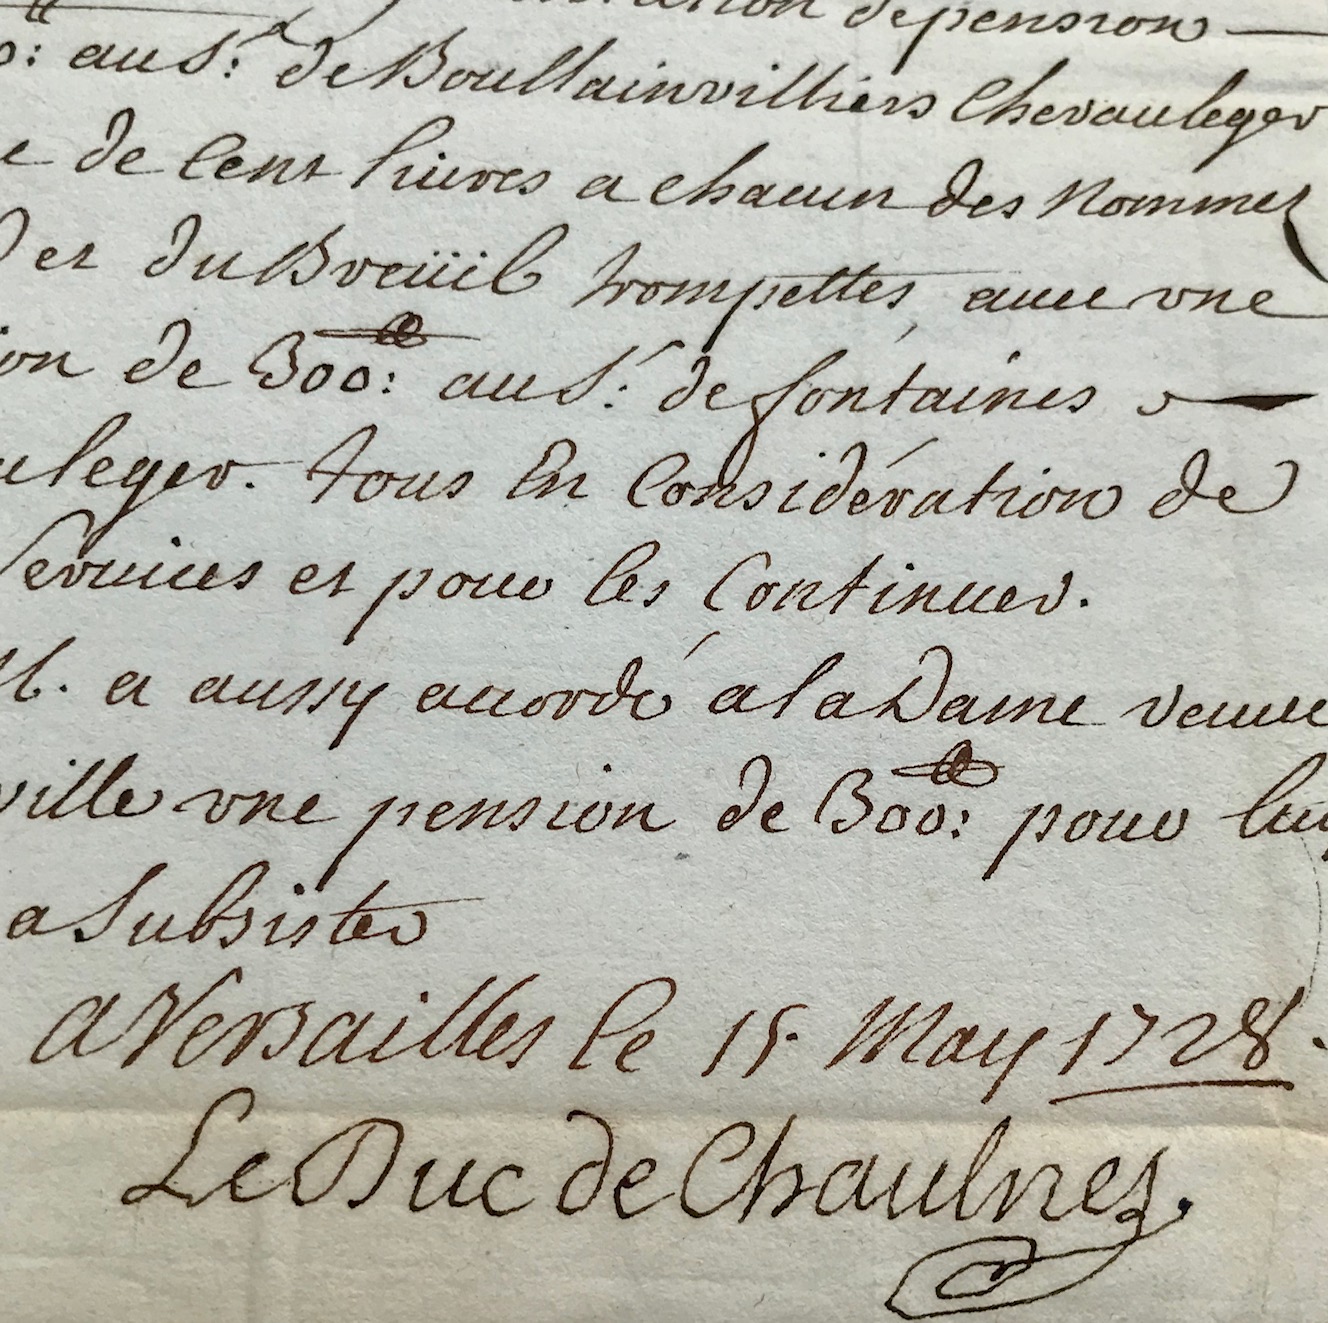 depension
au S.r de Boullainvilliers Chevauleger
de Cent livres a chacun des Nommez
et du Breüil trompettes, avec vne
ion de 300:ᵗᵗ au S.r de fontaines
uleger. tous En Considération de
Services et pour les Continuer.
M. a aussy accordé a la Dame veuve
ville vne pension de 300:ᵗᵗ pour luy
a Subsister
A Versailles le 15. May 1728.
Le Duc de Chaulnes.